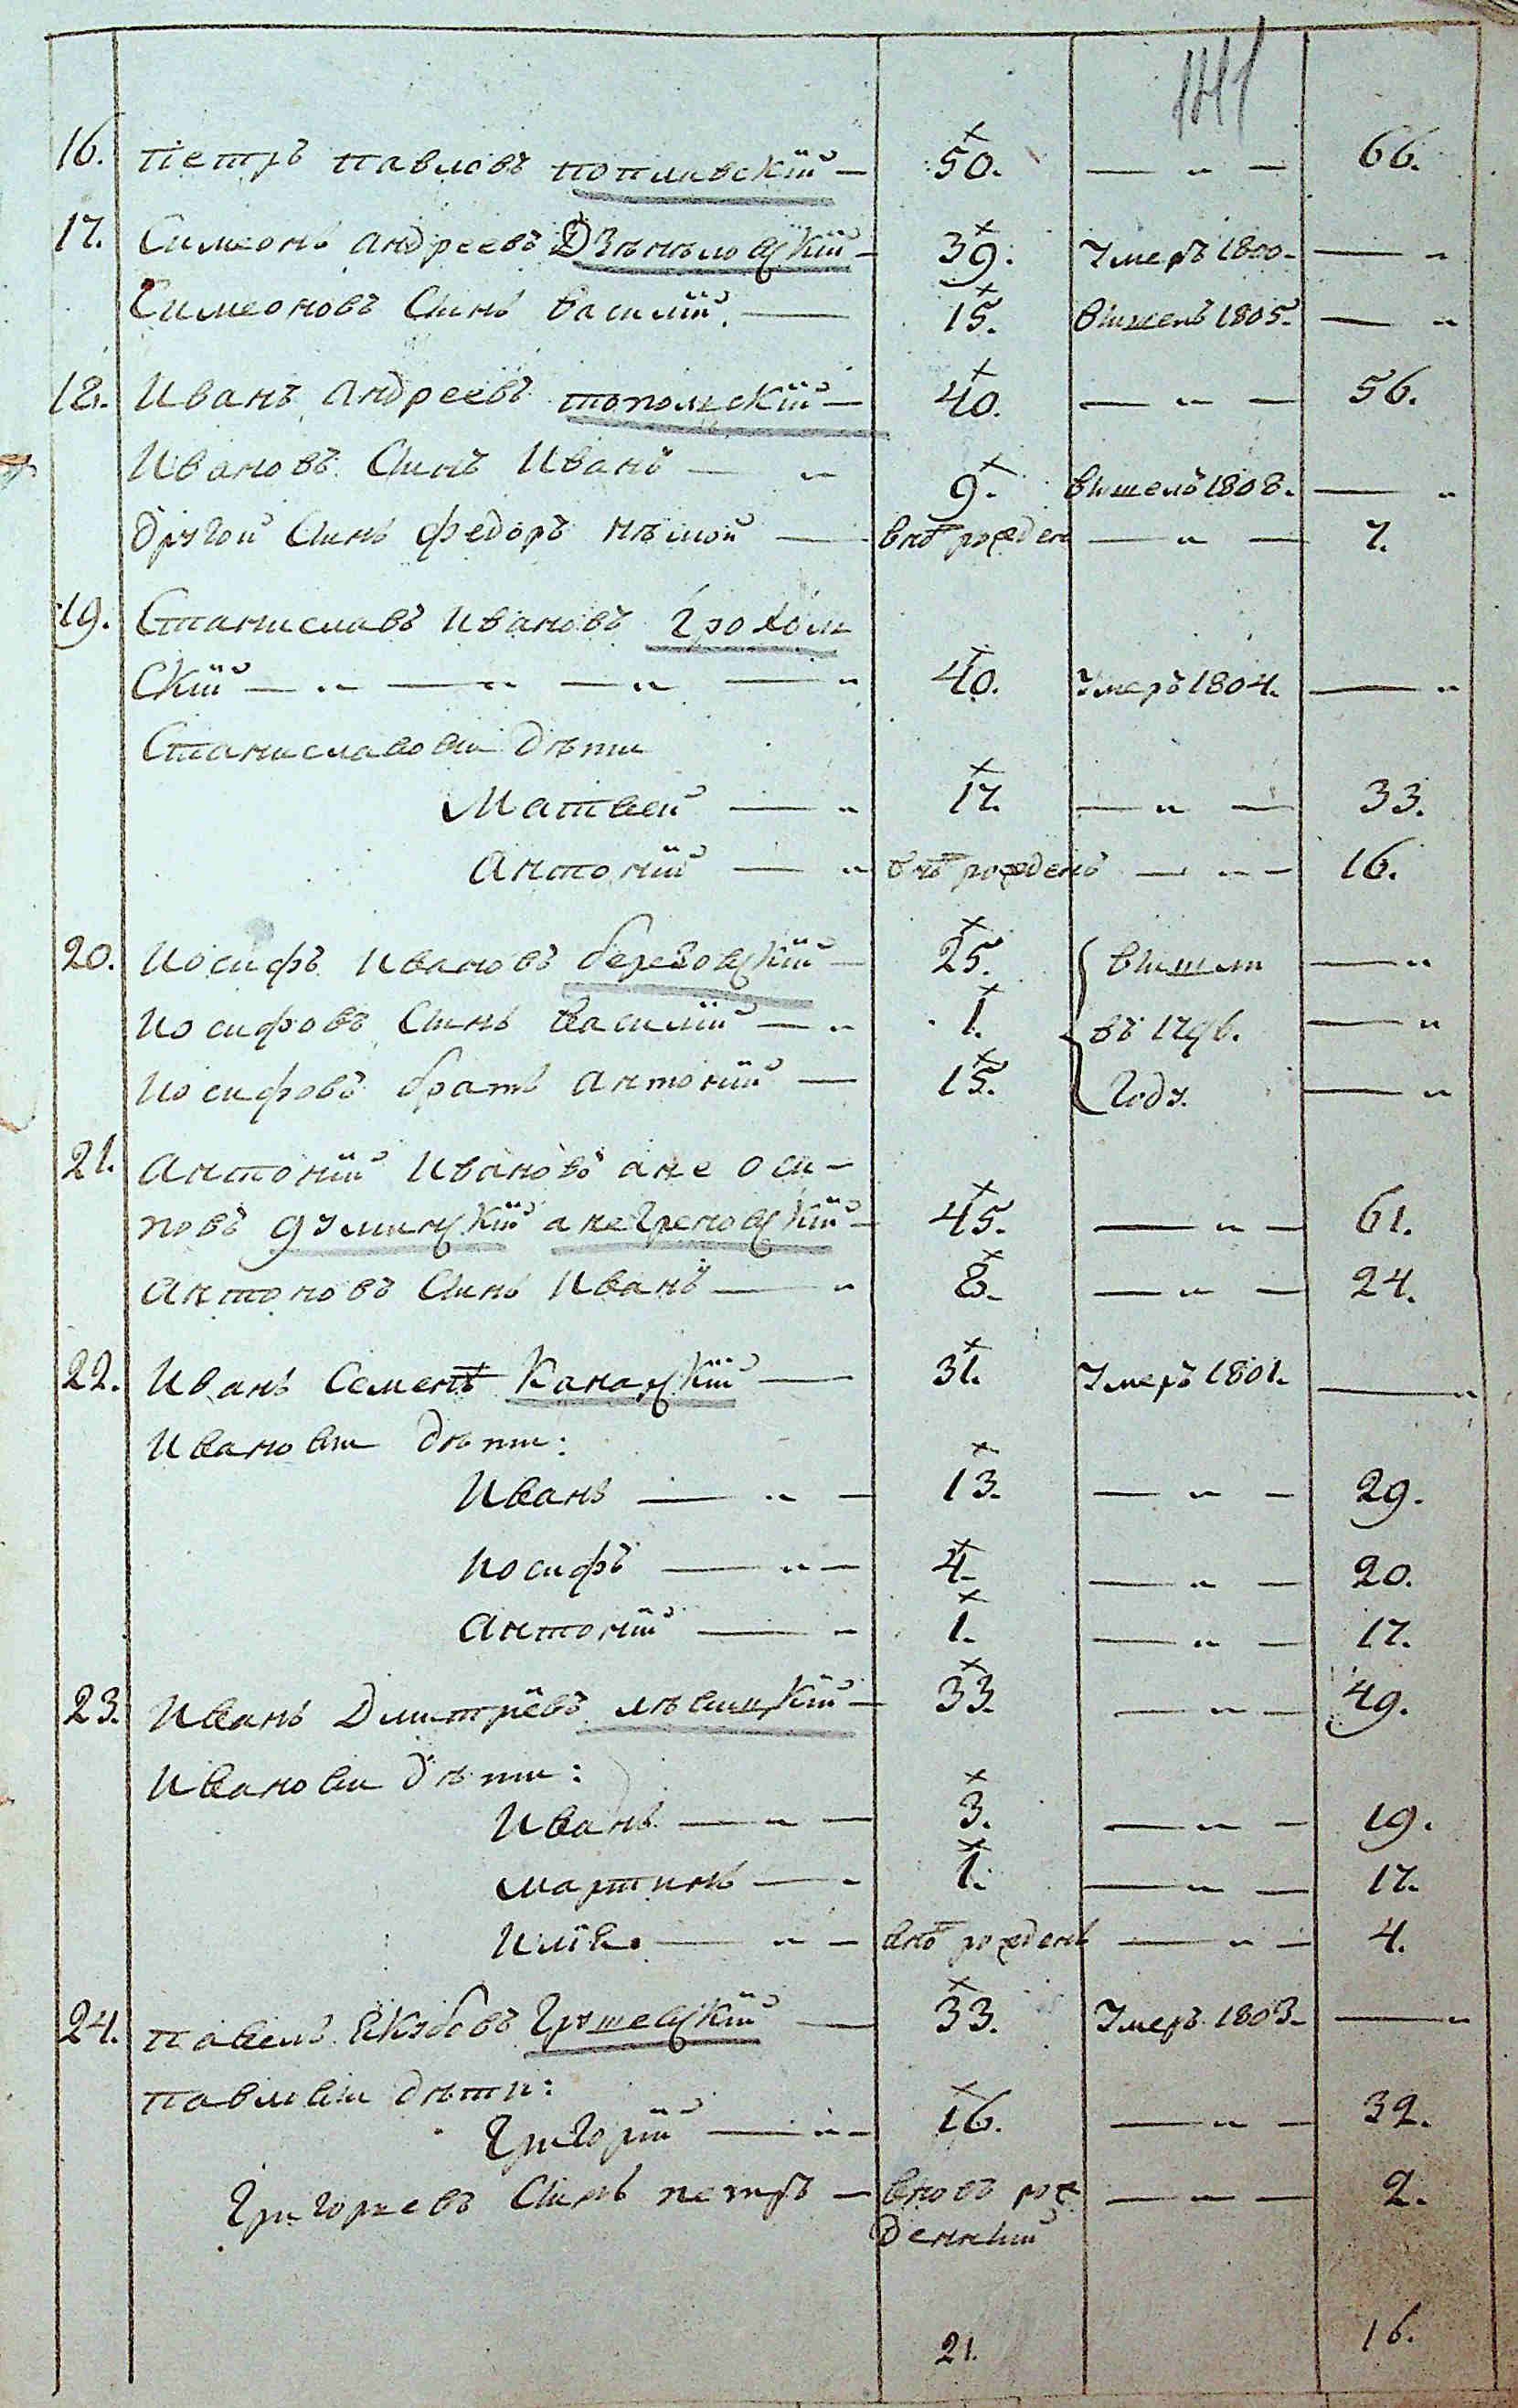 141
16. Петръ Павловъ Топилвскій — 50. — „ — 66.
17. Симеонъ Андреевъ — 39. Умеръ 1800. — „
Симеоновъ Сынъ Василій. — 15. Вышелъ 1805. — „
18. Иванъ Андреевъ Топольскій — 40. — „ — 56.
Ивановъ Сынъ Иванъ — „ 9. Вышелъ 1808. — „
Другой Сынъ Федоръ нѣмой — внѡ рожден — „ — 7.
19. Станиславъ Ивановъ Грохол
Скій — „ — „ — „ — „ 40. Умеръ 1804. — „
Станиславовы дѣти
Матвей — „ 17. — „ — 33.
Антоній — „ внѡ рожденъ — „ — 16.
20. Иосифъ Ивановъ Березовскій — 25. вышли — „
Иосифовъ Сынъ Василій — „ 1. въ 1796. — „
Иосифовъ братъ Антоній — 15. Году. — „
21. Антоній Ивановъ а не Оси-
повъ Думинскій а не Греновскій — 45. — „ — 61.
Антоновъ Сынъ Иванъ — „ 8. — „ — 24.
22. Иванъ Семенъ Канацкій — 31. Умеръ 1801. — „
Ивановы дѣти:
Иванъ — „ — 13. — „ — 29.
Иосифъ — „ — 4. — „ — 20.
Антоній — „ 1. — „ — 17.
23. Иванъ Дмитріевъ Лѣвицкій — 33. — „ — 49.
Ивановы дѣти:
Иванъ — „ — 3. — „ — 19.
Мартинъ — „ 1. — „ — 17.
Илія — „ — внѡ рожденъ — „ — 4.
24. Павелъ Якубовъ Грушевскій — 33. Умеръ 1803. — „
Павловы дѣти:
Григорій — „ — 16. — „ — 32.
Григорьевъ Сынъ Петръ — вновъ рож — „ — 2.
денный
21. 16.